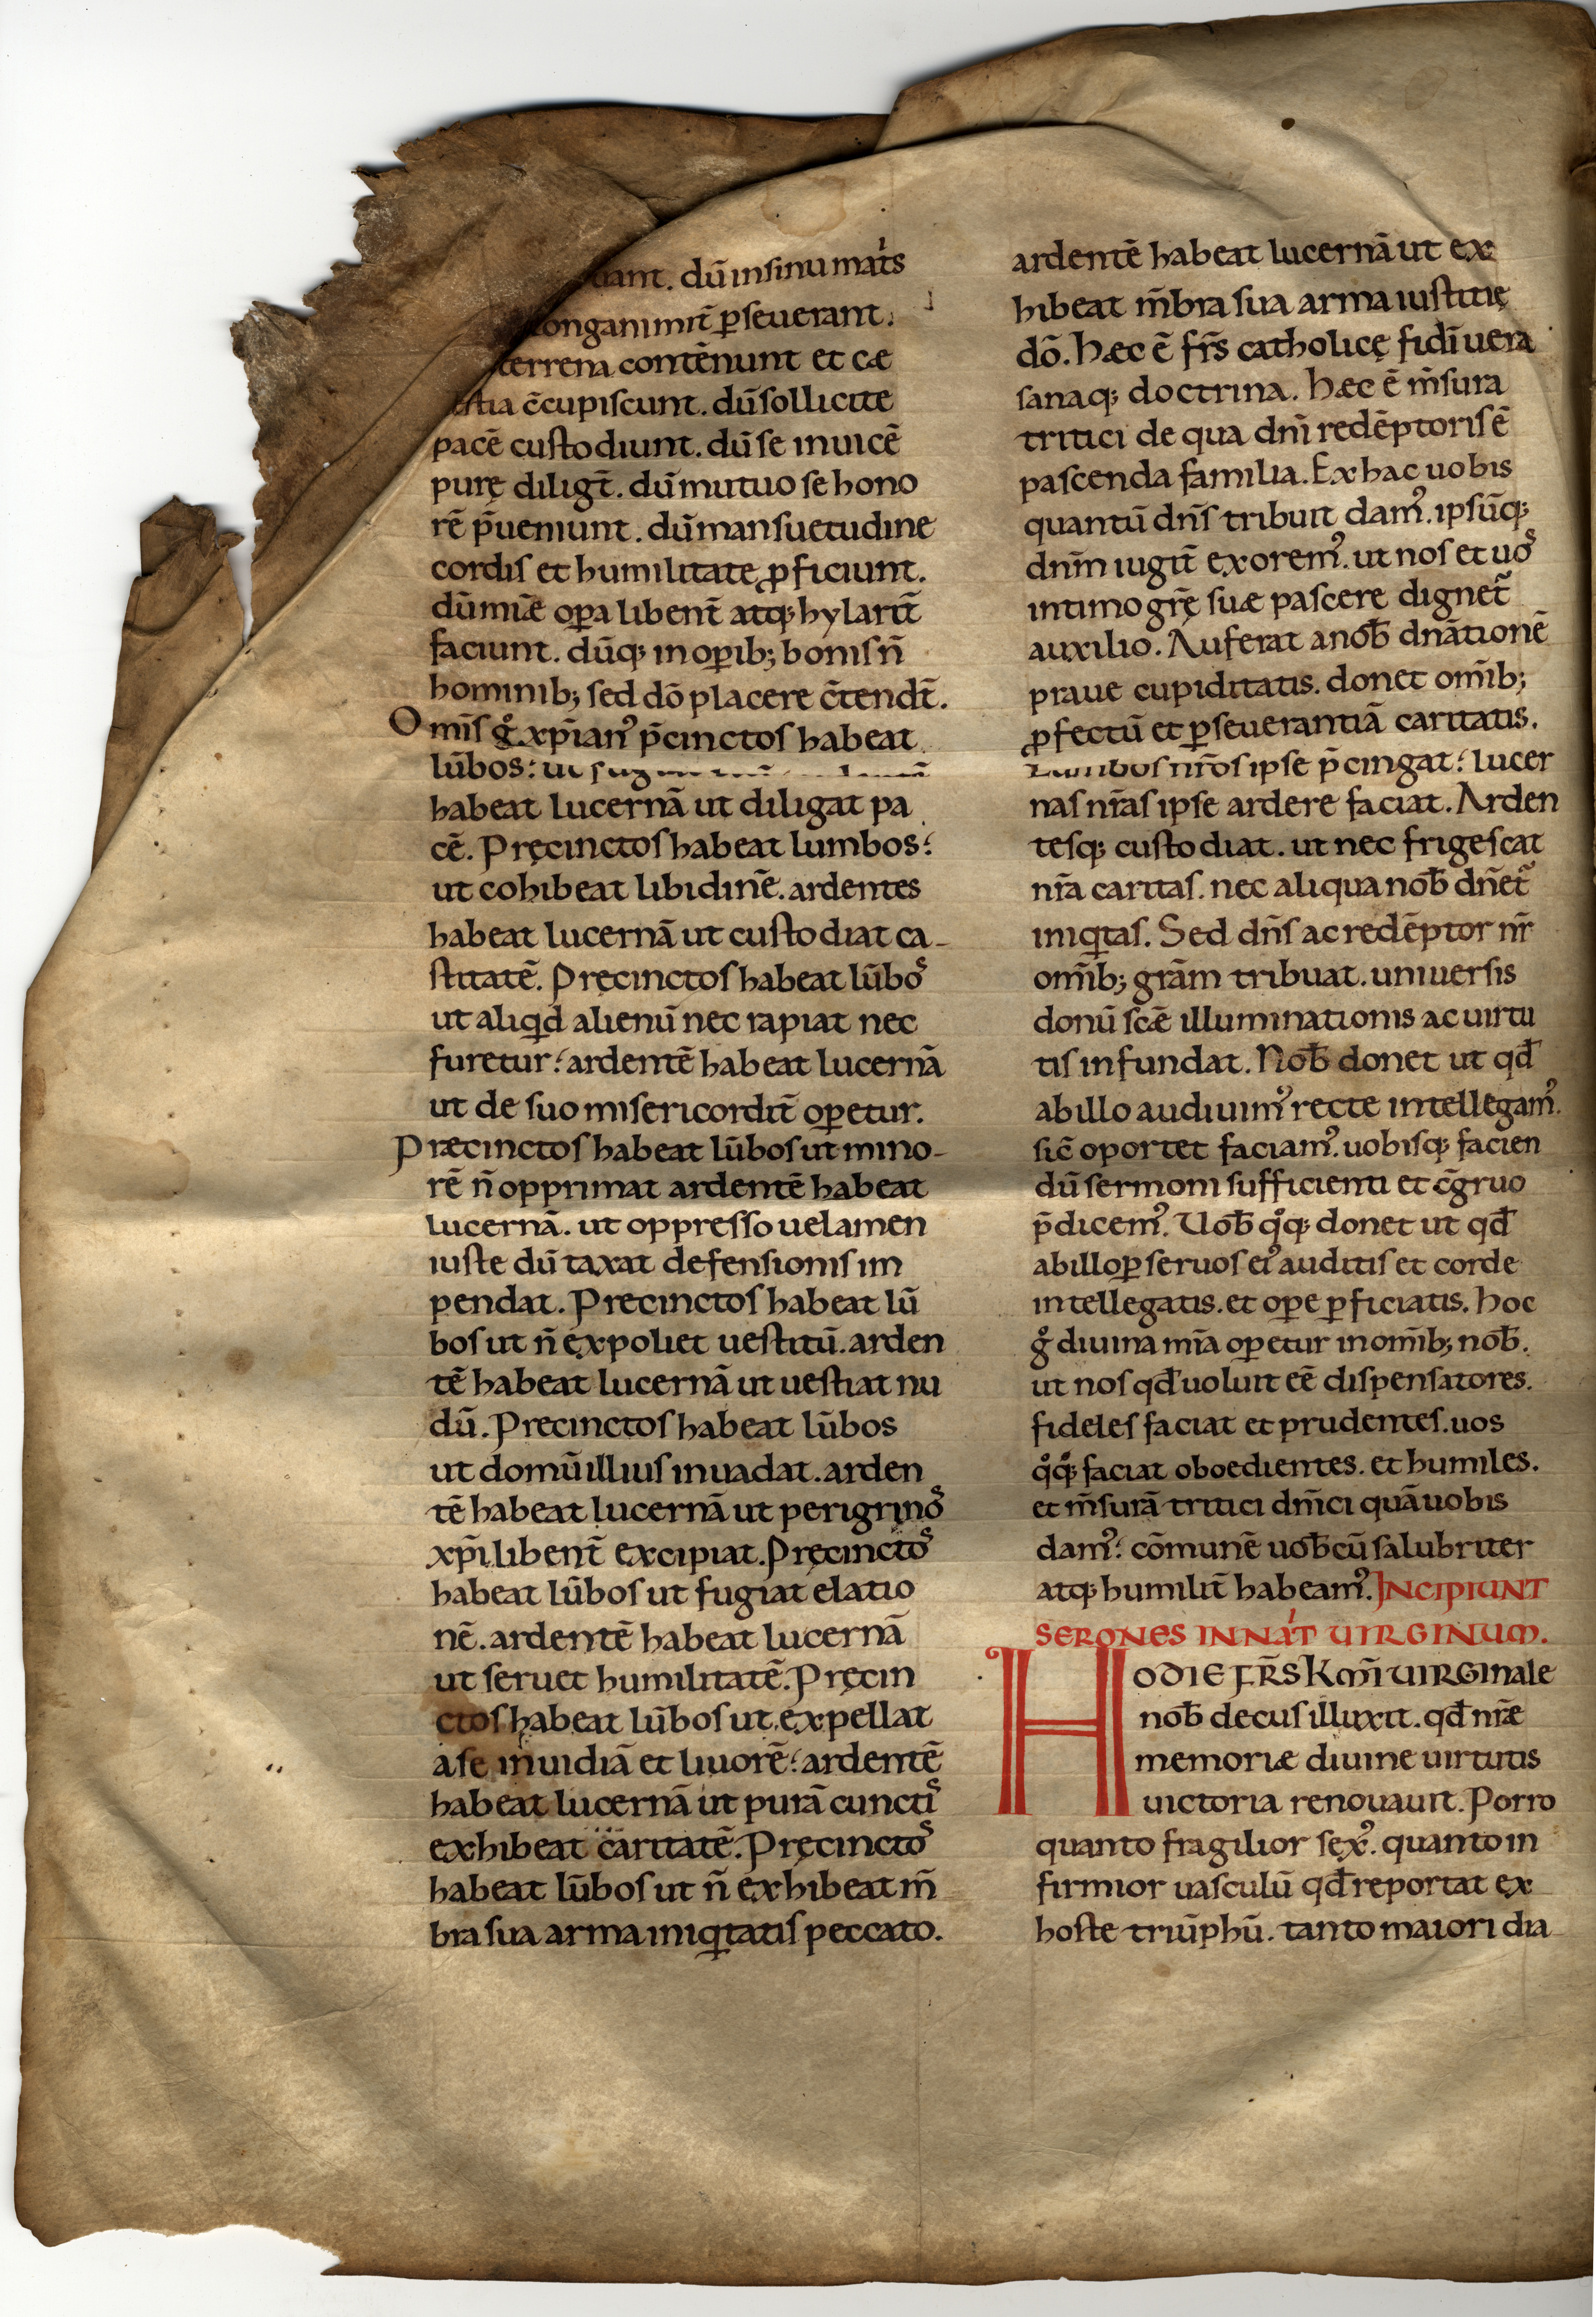 dū in sinu mat̄s
onganimit̄ ꝑseuerant.
terrena contēnunt et cæ
stia c̄cupiscunt. dū sollicite
pacē custodiunt. dū se inuicē
purę diligt̄. dū mutuo se hono
rē p̄ueniunt. dū mansuetudine
cordis et humilitate ꝓficiunt.
dū mīæ oꝑa libent̄ atq; hylarit̄
faciunt. dūq; in oꝑib; bonis n̄
hominib; sed dō placere c̄tendt̄.
Omīs gͦ xp̄ianꝰ p̄cinctos habeat
lūbos:
habeat lucernā ut diligat pa
cē. Pręcinctos habeat lumbos:
ut cohibeat libidinē. ardentes
habeat lucernā ut custodiat ca-
stitatē. Pręcinctos habeat lūbos
ut aliqͥd alienū nec rapiat nec
furetur: ardentē habeat lucernā
ut de suo misericordit̄ oꝑetur.
Præcinctos habeat lūbos ut mino-
rē n̄ opprimat ardentē habeat
lucernā. ut oppresso uelamen
iuste dū taxat defensionis im
pendat. Precinctos habeat lū
bos ut n̄ expoliet uestitū. arden
tē habeat lucernā ut uestiat nu
dū. Precinctos habeat lūbos
ut domū illius inuadat. arden
tē habeat lucernā ut perigrinos
xp̄i libent̄ excipiat. Pręcinctos
habeat lūbos ut fugiat elatio
nē. ardentē habeat lucernā
ut seruet humilitatē. Pręcin
ctos habeat lūbos ut expellat
a se inuidiā et liuorē: ardentē
habeat lucernā ut purā cunctis
exhibeat caritatē. Pręcinctos
habeat lūbos ut n̄ exhibeat m̄
bra sua arma iniqͥtatis peccato.
ardentē habeat lucernā ut ex
hibeat m̄bra sua arma iustitię
dō. Hæc ē fr̄s catholicę fidī uera
sanaq; doctrina. Hæc ē m̄sura
tritici de qua dn̄i redēptoris ē
pascenda familia. Ex hac uobis
quantū dn̄s tribuit damꝰ. ipsūq;
dn̄m iugit̄ exoremꝰ. ut nos et uos
intimo gr̄ę suæ pascere dignet̄
auxilio. Auferat a nob̄ dn̄ationē
praue cupiditatis. donet om̄ib;
ꝓfectū et ꝑseuerantiā caritatis.
Lumbos nr̄os ipse p̄cingat: lucer
nas nr̄as ipse ardere faciat. Arden
tesq; custodiat. ut nec frigescat
nr̄a caritas. nec aliqua nob̄ dn̄et̄
iniqͥtas. Sed dn̄s ac redēptor nr̄
om̄ib; grām tribuat. uniuersis
donū scǣ illuminationis ac uirtu
tis infundat. Nob̄ donet ut qd̄
ab illo audiuimꝰ recte intellegamꝰ.
sic̄ oportet faciamꝰ. uobisq; facien
dū sermoni sufficienti et c̄gruo
p̄dicemꝰ. Uob̄ qͦq; donet ut qd̄
ab illo ꝑ seruos eiꝰ auditis et corde
intellegatis. et oꝑe ꝑficiatis. hoc
gͦ diuina mīa oꝑetur in om̄ib; nob̄.
ut nos qd̄ uoluit eē dispensatores.
fideles faciat et prudentes. uos
qͦqͦ; faciat oboedientes. et humiles.
et m̄surā tritici dn̄ici quā uobis
damꝰ: cōmunē uob̄cū salubriter
atq; humilit̄ habeamꝰ. INCIPIUNT
SERONES IN NAT̄ UIRGINUM.
HODIE FR̄S Km̄i UIRGInale
nob̄ decus illuxit. qd̄ nr̄æ
memoriæ diuine uirtutis
uictoria renouauit. Porro
quanto fragilior sexꝰ. quanto in
firmior uasculū qd̄ reportat ex
hoste triūphū. tanto maiori dia